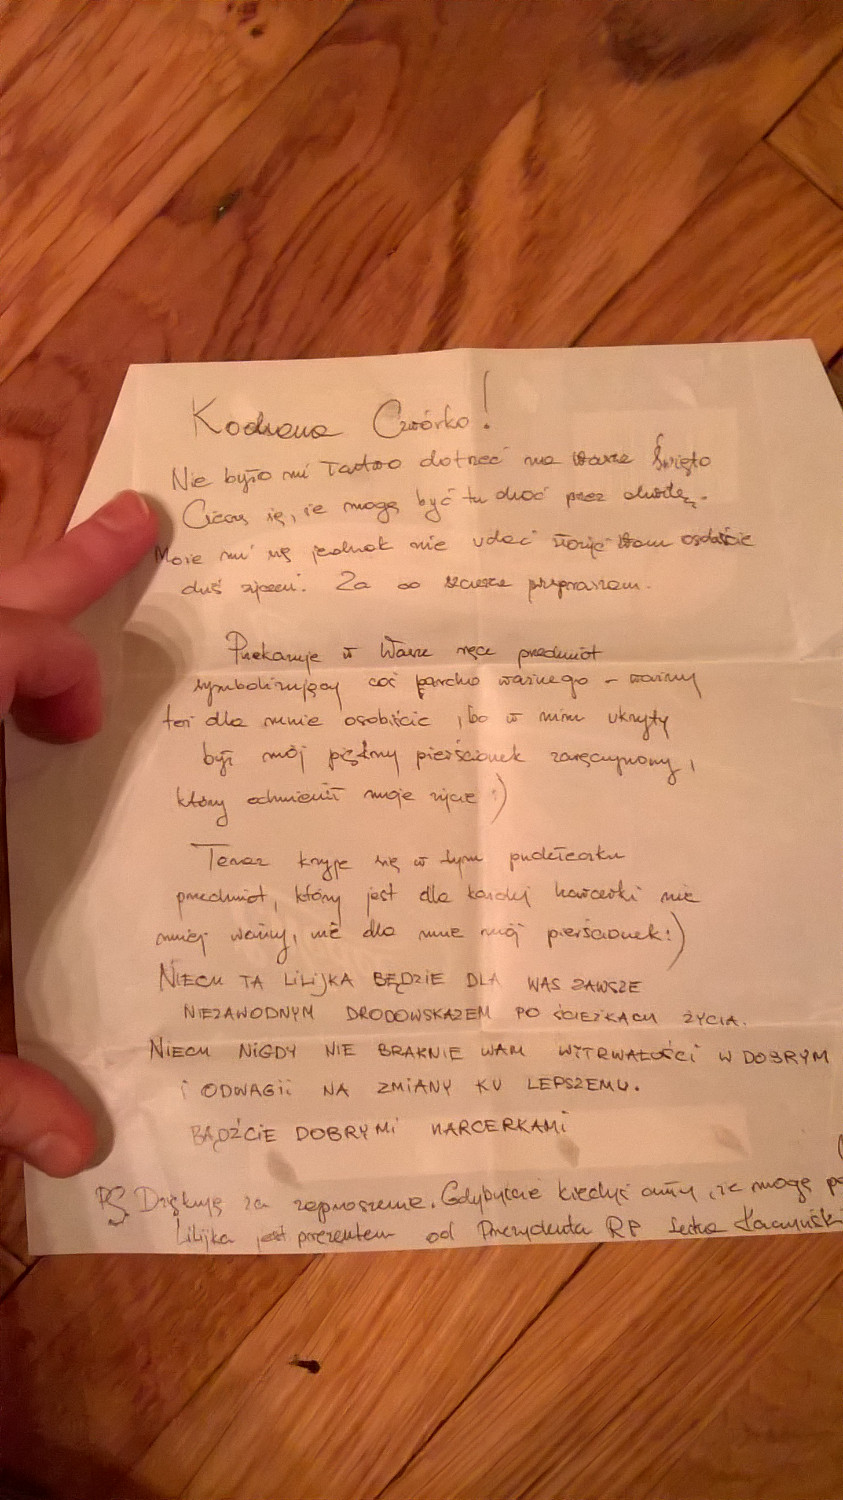 Kochana Czwórko!
Nie było mi łatwo dotrzeć na Wasze Święto
Cieszę się, że mogę być tu choć przez chwilę.
Może mi się jednak nie udać złożyć Wam osobiście
dziś życzeń. Za co szczerze przepraszam.
Przekazuję w Wasze ręce przedmiot
symbolizujący coś bardzo ważnego - ważny
też dla mnie osobiście, bo w nim ukryty
był mój piękny pierścionek zaręczynowy,
który odmienił moje życie :)
Teraz kryje się w tym pudełeczku
przedmiot, który jest dla każdej harcerki nie
mniej ważny, niż dla mnie mój pierścionek :)
NIECH TA LILIJKA BĘDZIE DLA WAS ZAWSZE
NIEZAWODNYM DROGOWSKAZEM PO ŚCIEŻKACH ŻYCIA.
NIECH NIGDY NIE BRAKNIE WAM WYTRWAŁOŚCI W DOBRYM
I ODWAGII NA ZMIANY KU LEPSZEMU.
BĄDŹCIE DOBRYMI HARCERKAMI
PS Dziękuję za zaproszenie. Gdybyście kiedyś że mogę
Lilijka jest prezentem od Prezydenta RP Lecha Kaczyński